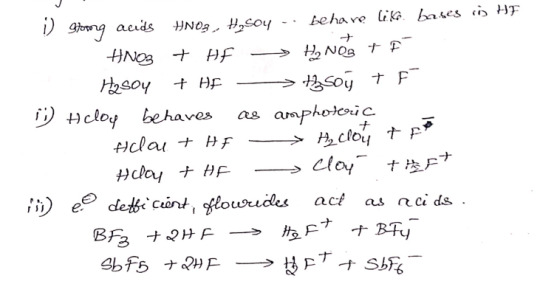 i) strong acids HNO3, H2SO4 -- behave like bases in HF
HNO3 + HF ⟶ H2NO3+ + F-
H2SO4 + HF ⟶ H3SO4- + F-
ii) HClO4 behaves as amphoteric
HClO4 + HF ⟶ H2ClO4+ + F-
HClO4 + HF ⟶ ClO4- + H2F+
iii) e⊖ defficient, flourides act as acids.
BF3 + 2HF ⟶ H2F+ + BF4-
SbF5 + 2HF ⟶ H2F+ + SbF6-